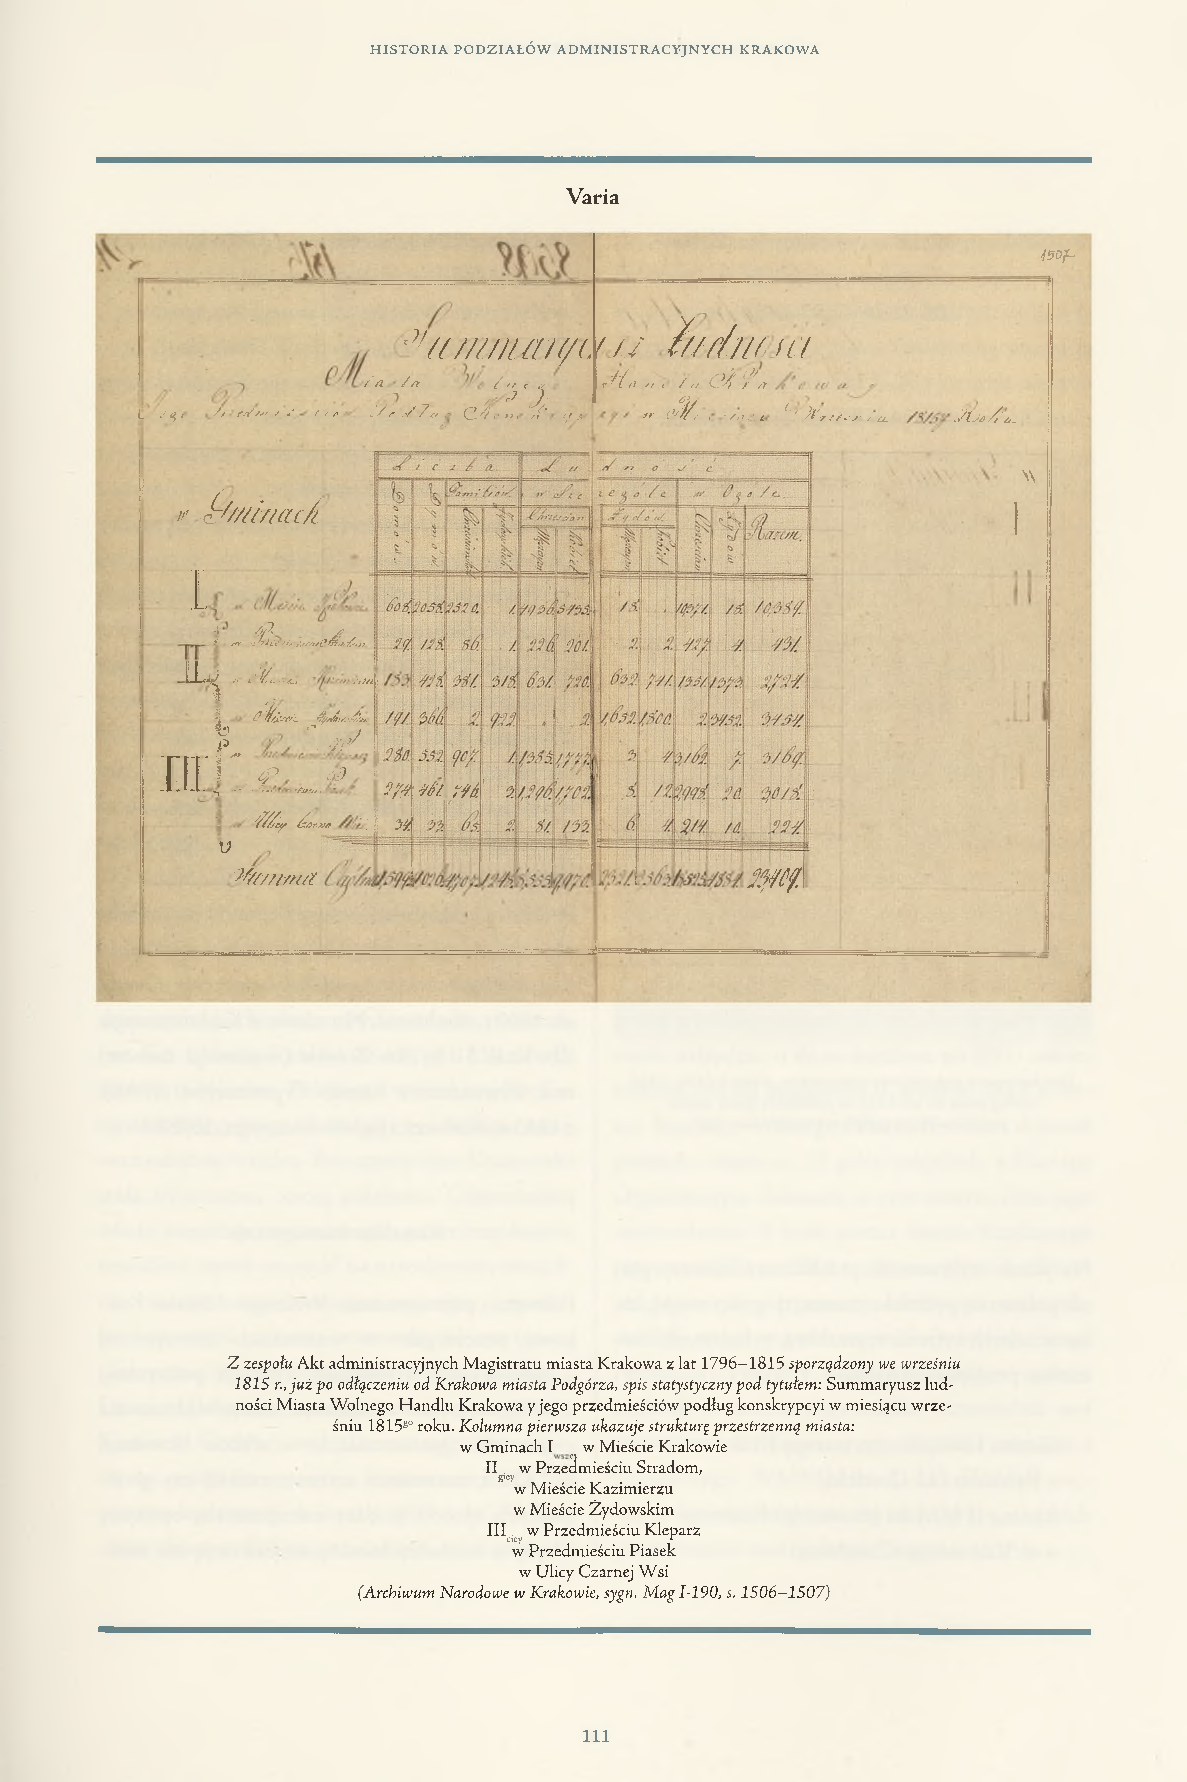 HISTORIA PODZIAŁÓW ADMINISTRACYJNYCH KRAKOWA
Varia
1507
Summaryusz Ludności
Miasta Wolnego Handlu Krakowa y
Jego Przedmieściów Podług Konskrypcyi w Miesiącu Wrześniu 1815go Roku
Liczba Ludność
w Gminach Domów Dymów Familiów w Szczególe w Ogóle
Chrześcian Żydów Chrześcian Żydów Razem.
Mężczyzn Kobiet Mężczyzn Kobiet
I w Mieście Krakowie 608. 2058. 2520. 1. 4936. 5435. 18. . 10371. 18. 10,389.
II w Przedmieściu Stradom 29. 128. 86. 1. 226. 201. 2. 2. 427. 4. 431.
w Mieście Kazimierzu 183. 428. 381. 318. 631. 720. 632. 741. 1351. 1373. 2724.
w Mieście 191. 366. 2. 922. . 2. 1,652. 1800. 2. 3452. 3454.
III w Przedmieściu Kleparz 280. 552. 907. 1. 1385. 1777. 3. 4. 3162. 7. 3169.
w Przedmieściu Piasek 274. 461. 746. 3. 1,296. 1702. 8. 12. 2998. 20. 3018.
w Ulicy Czarna Wieś 34. 33. 65. 2. 81. 133. 6. 4. 214. 10. 224.
Summa 23409.
Z zespołu Akt administracyjnych Magistratu miasta Krakowa z lat 1796–1815 sporządzony we wrześniu
1815 r., już po odłączeniu od Krakowa miasta Podgórza, spis statystyczny pod tytułem: Summaryusz lud-
ności Miasta Wolnego Handlu Krakowa y jego przedmieściów podług konskrypcyi w miesiącu wrze-
śniu 1815go roku. Kolumna pierwsza ukazuje strukturę przestrzenną miasta:
w Gminach I wszej w Mieście Krakowie
II giey w Przedmieściu Stradom,
w Mieście Kazimierzu
w Mieście Żydowskim
III ciey w Przedmieściu Kleparz
w Przedmieściu Piasek
w Ulicy Czarnej Wsi
(Archiwum Narodowe w Krakowie, sygn. Mag I-190, s. 1506–1507)
111